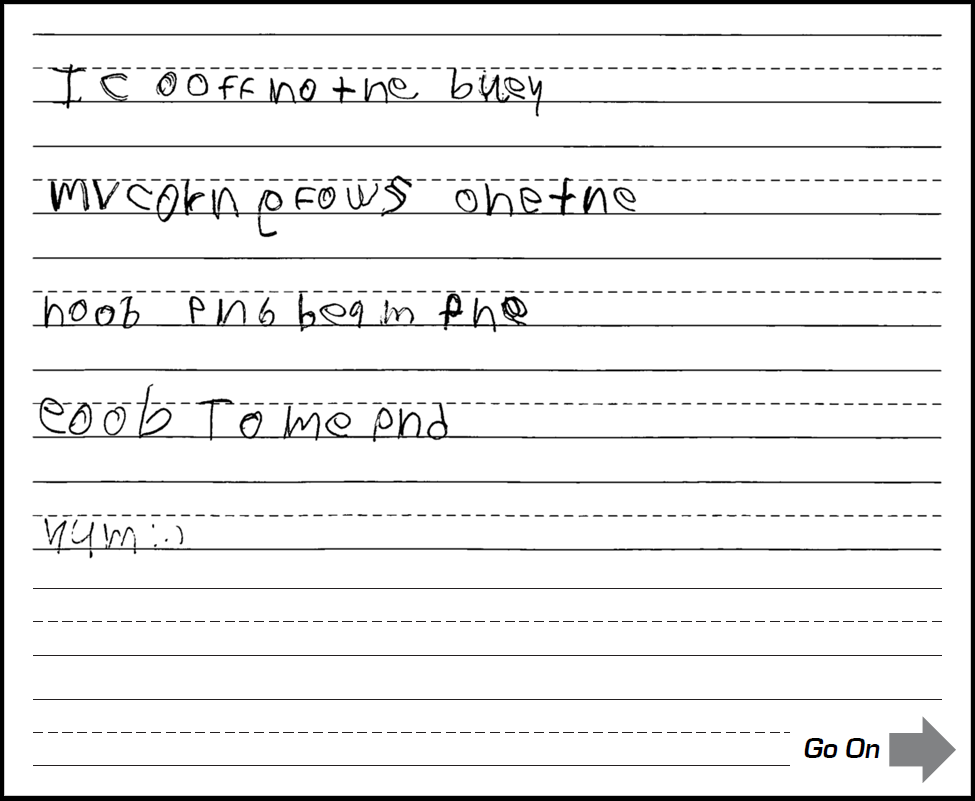 I c ooff no tne buey
mvcorn grows onetne
hoob pnb beam the
eoob To me pnd
yym :)
Go On